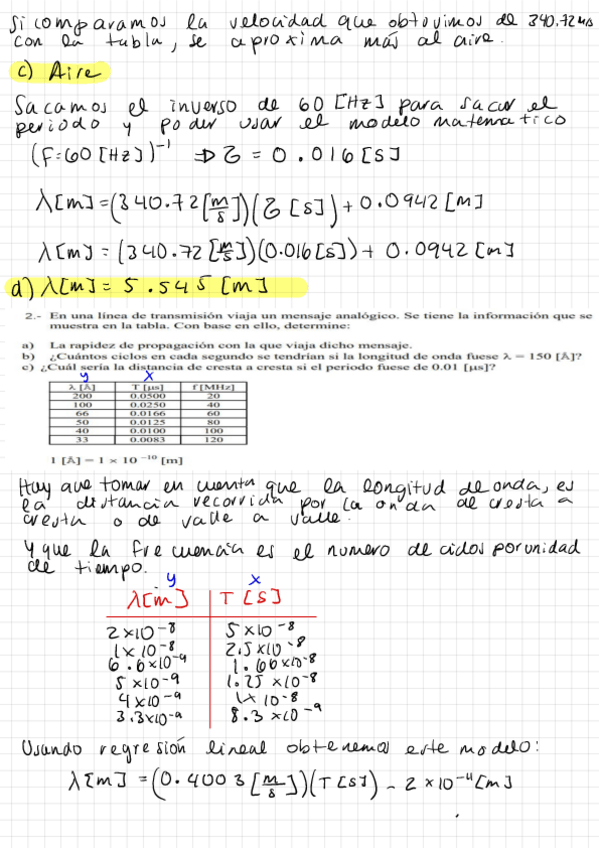 Si comparamos la velocidad que obtuvimos de 340.72 m/s
con la tabla, se aproxima más al aire.
c) Aire
Sacamos el inverso de 60 [Hz] para sacar el
periodo y poder usar el modelo matematico
(F=60 [Hz])⁻¹ => τ = 0.016 [s]
λ[m] = (340.72 [m/s])(τ [s]) + 0.0942 [m]
λ[m] = (340.72 [m/s])(0.016 [s]) + 0.0942 [m]
d) λ[m] = 5.545 [m]
2.- En una línea de transmisión viaja un mensaje analógico. Se tiene la información que se
muestra en la tabla. Con base en ello, determine:
a) La rapidez de propagación con la que viaja dicho mensaje.
b) ¿Cuántos ciclos en cada segundo se tendrían si la longitud de onda fuese λ = 150 [Å]?
c) ¿Cuál sería la distancia de cresta a cresta si el periodo fuese de 0.01 [μs]?
y x
λ [Å] T [μs] f [MHz]
200 0.0500 20
100 0.0250 40
66 0.0166 60
50 0.0125 80
40 0.0100 100
33 0.0083 120
1 [Å] = 1 × 10⁻¹⁰ [m]
Hay que tomar en cuenta que la longitud de onda, es
la distancia recorrida por la onda de cresta a
cresta o de valle a valle.
Y que la frecuencia es el numero de ciclos por unidad
de tiempo.
y x
λ[m] T [s]
2×10⁻⁸ 5×10⁻⁸
1×10⁻⁸ 2.5×10⁻⁸
6.6×10⁻⁹ 1.66×10⁻⁸
5×10⁻⁹ 1.25×10⁻⁸
4×10⁻⁹ 1×10⁻⁸
3.3×10⁻⁹ 8.3×10⁻⁹
Usando regresión lineal obtenemos este modelo:
λ[m] = (0.4003 [m/s])(T[s]) - 2×10⁻¹¹ [m]